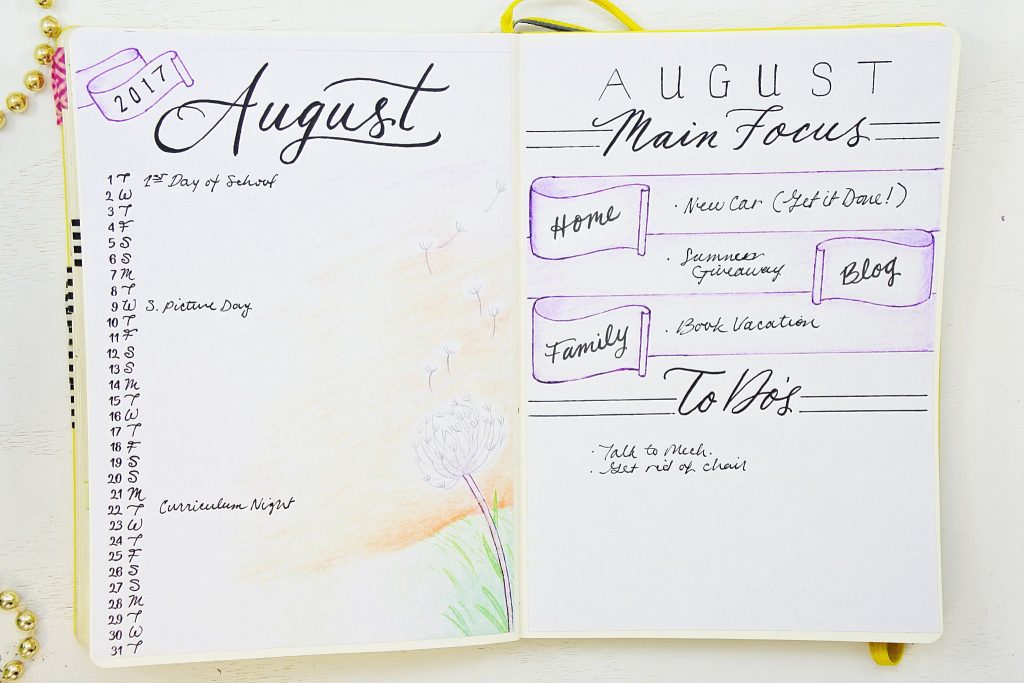 2017
August
1 T 1st Day of School
2 W
3 T
4 F
5 S
6 S
7 M
8 T
9 W S. Picture Day
10 T
11 F
12 S
13 S
14 M
15 T
16 W
17 T
18 F
19 S
20 S
21 M
22 T Curriculum Night
23 W
24 T
25 F
26 S
27 S
28 M
29 T
30 W
31 T
AUGUST
Main Focus
Home
· New Car (Get it Done!)
· Summer
Giveaway
Blog
Family
· Book Vacation
To Do's
· Talk to Mech.
· Get rid of chair